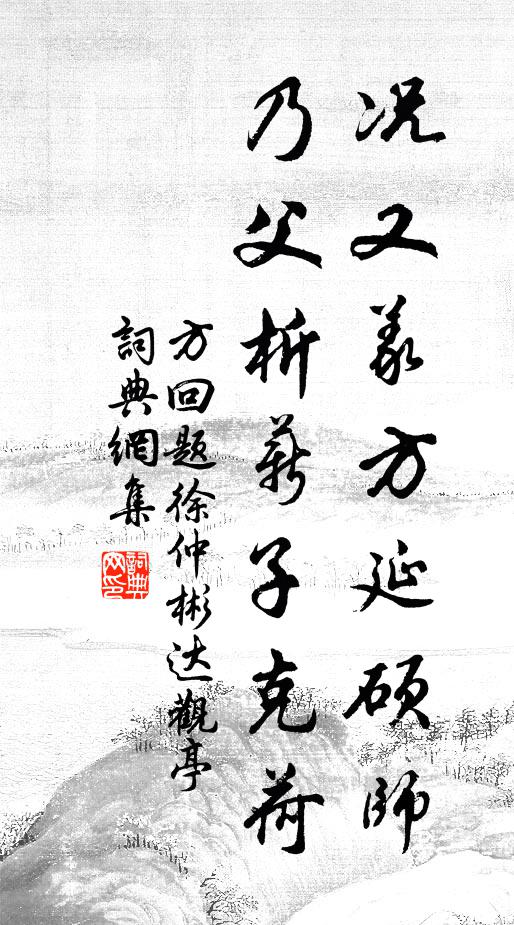 况又义方延硕師
乃父析薪子克荷
方回题徐仲彬达觀亭
詞典網集
詞典网印